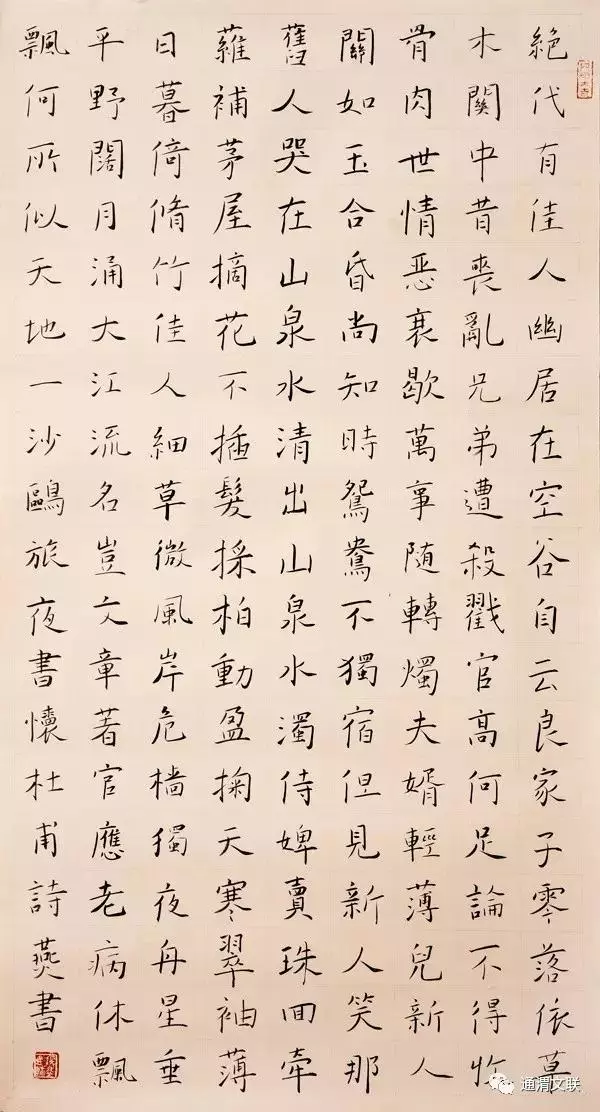 絕代有佳人幽居在空谷自云良家子零落依草
木關中昔喪亂兄弟遭殺戮官高何足論不得收
骨肉世情恶衰歇萬事随轉燭夫婿輕薄兒新人
關如玉合昏尚知時鴛鴦不獨宿但見新人笑那
舊人哭在山泉水清出山泉水濁侍婢賣珠回牽
蘿補茅屋摘花不插髮採柏動盈掬天寒翠袖薄
日暮倚脩竹佳人細草微風岸危檣獨夜舟星垂
平野闊月涌大江流名豈文章著官應老病休飄
飄何所似天地一沙鷗旅夜書懷杜甫詩燕書
通渭文联